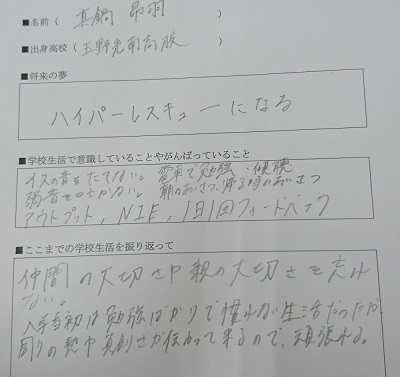 ■名前(真鍋 昂羽)
■出身高校(玉野光南高校)
■将来の夢
ハイパーレスキューになる
■学校生活で意識していることやがんばっていること
イスの音をたてない。電車で勉強・傾聴
弱音をはかない。朝のあいさつ、帰る時のあいさつ
アウトプット, NIE, 1日1回フィードバック
■ここまでの学校生活を振り返って
仲間の大切さや親の大切さを忘れ
ない。
入学当初は勉強ばかりで慣れない生活だったが
周りの熱や真剣さが伝わって来るので、頑張れる。